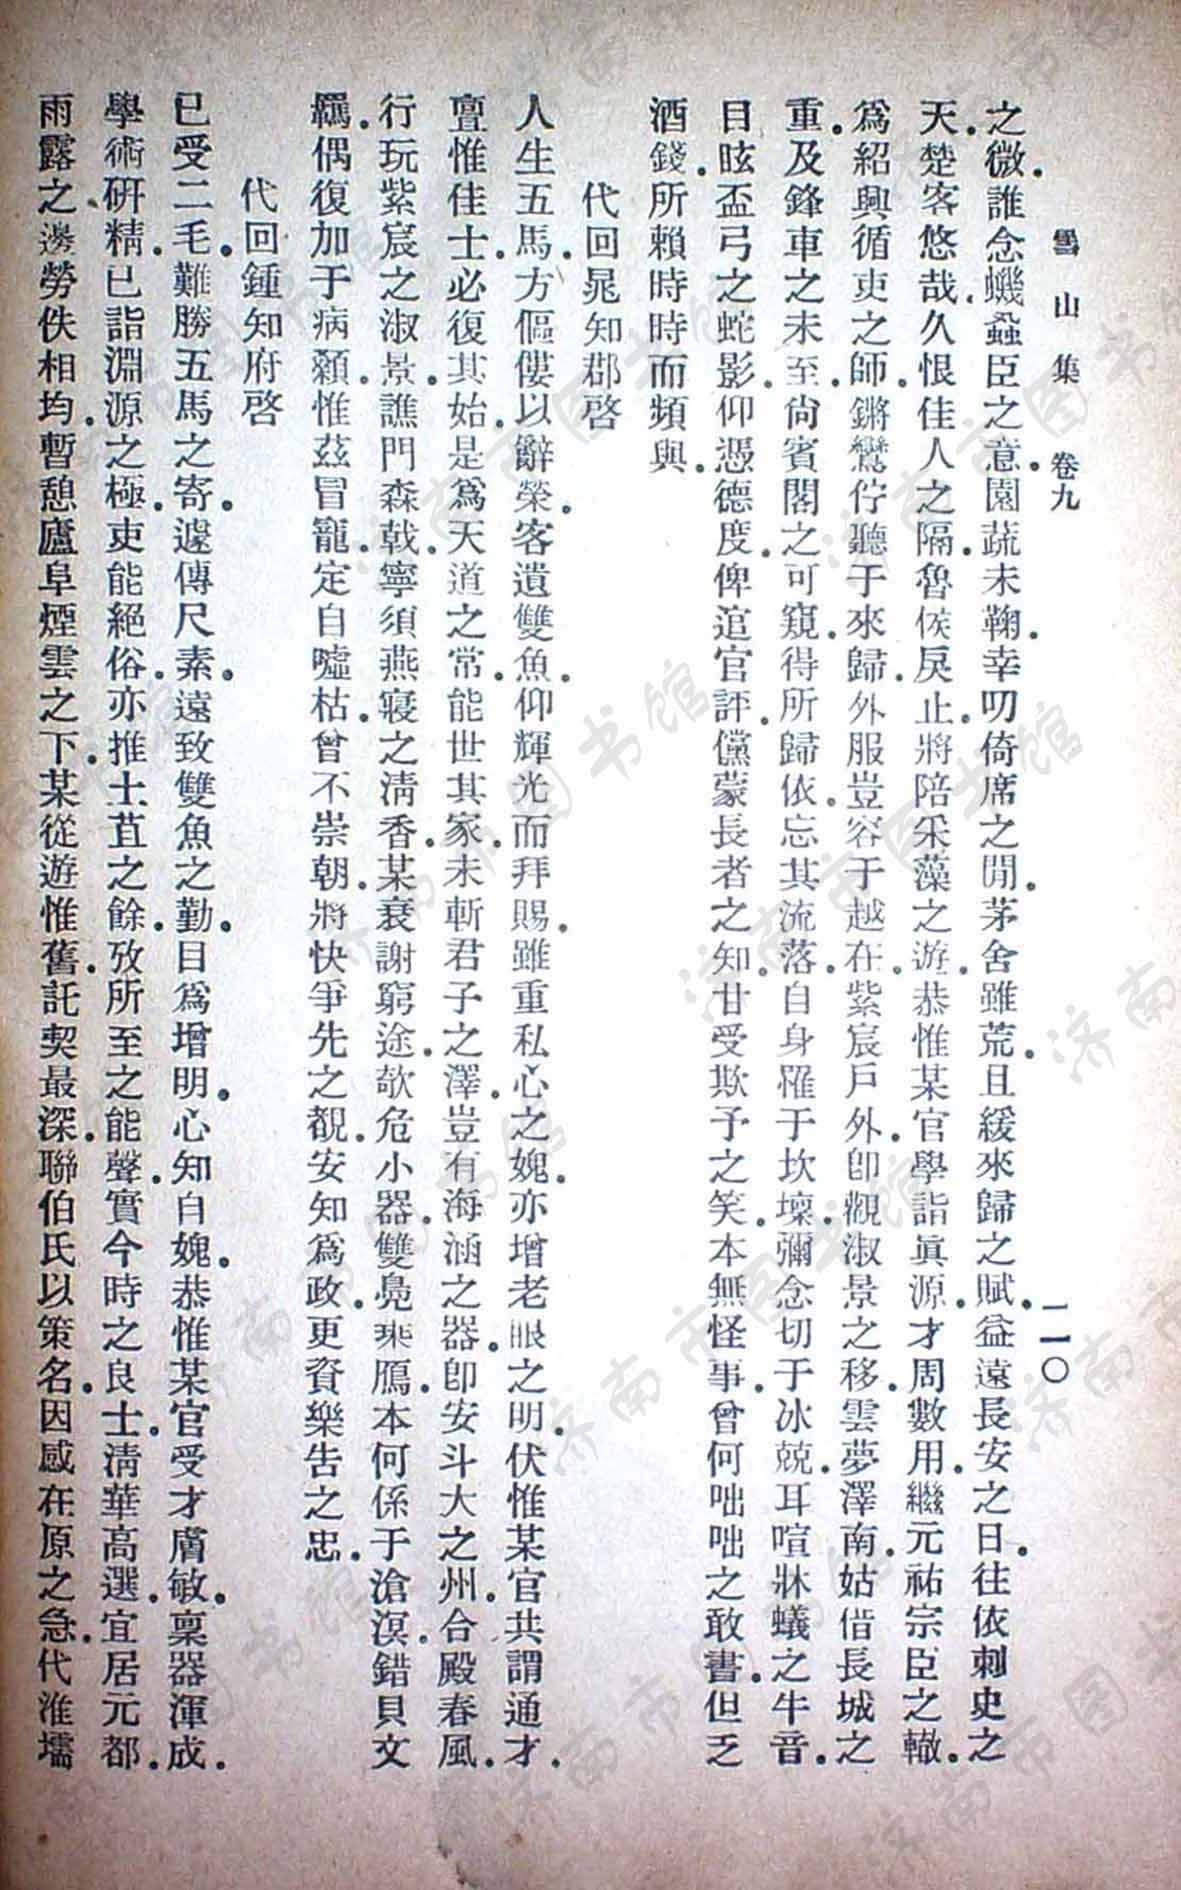 雪山集 卷九 一一〇
之微。誰念蟣蝨臣之意。園蔬未鞠。幸叨倚席之閒。茅舍雖荒。且緩來歸之賦。益遠長安之日。往依刺史之
天。楚客悠哉。久恨佳人之隔。魯侯戾止。將陪采藻之游。恭惟某官學詣眞源。才周數用。繼元祐宗臣之轍。
爲紹興循吏之師。鏘鸞佇聽于來歸。外服豈容于越在。紫宸戶外。卽觀淑景之移。雲夢澤南。姑借長城之
重。及鋒車之未至。尙賓閣之可窺。得所歸依。忘其流落。自身罹于坎壈。彌念切于冰兢。耳喧牀蟻之牛音。
目眩盃弓之蛇影。仰憑德度。俾逭官評。儻蒙長者之知。甘受欺予之笑。本無怪事。曾何咄咄之敢書。但乏
酒錢。所賴時時而頻與。
代回晁知郡啓
人生五馬。方傴僂以辭榮。客遺雙魚。仰輝光而拜賜。雖重私心之媿。亦增老眼之明。伏惟某官共謂通才。
亶惟佳士。必復其始。是爲天道之常。能世其家。未斬君子之澤。豈有海涵之器。卽安斗大之州。合殿春風。
行玩紫宸之淑景。譙門森戟。寧須燕寢之淸香。某衰謝窮途。欹危小器。雙鳧乘鴈。本何係于滄溟。錯貝文
羈。偶復加于病顙。惟茲冒寵。定自噓枯。曾不崇朝。將快爭先之覩。安知爲政。更資樂告之忠。
代回鍾知府啓
已受二毛。難勝五馬之寄。遽傳尺素。遠致雙魚之勤。目爲增明。心知自媿。恭惟某官受才膚敏。稟器渾成。
學術硏精。已詣淵源之極。吏能絕俗。亦推土苴之餘。攷所至之能聲。實今時之良士。淸華高選。宜居元都
雨露之邊。勞佚相均。暫憩廬阜煙雲之下。某從遊惟舊。託契最深。聯伯氏以策名。因感在原之急。代淮壖